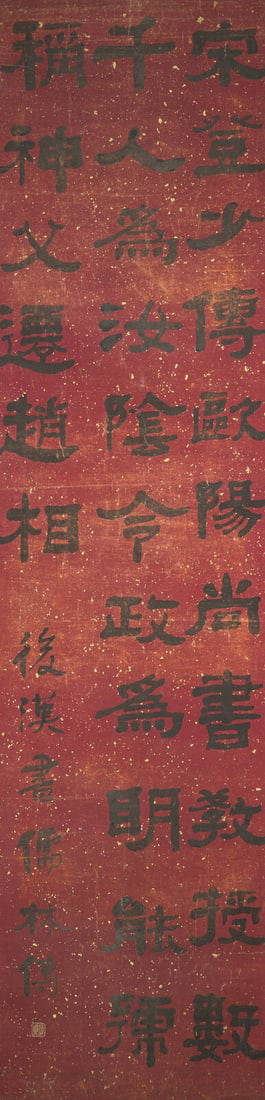 宋登少傳歐陽尚書教授數
千人為汝陰令政為明能號
稱神父遷趙相
後漢書儒林傳